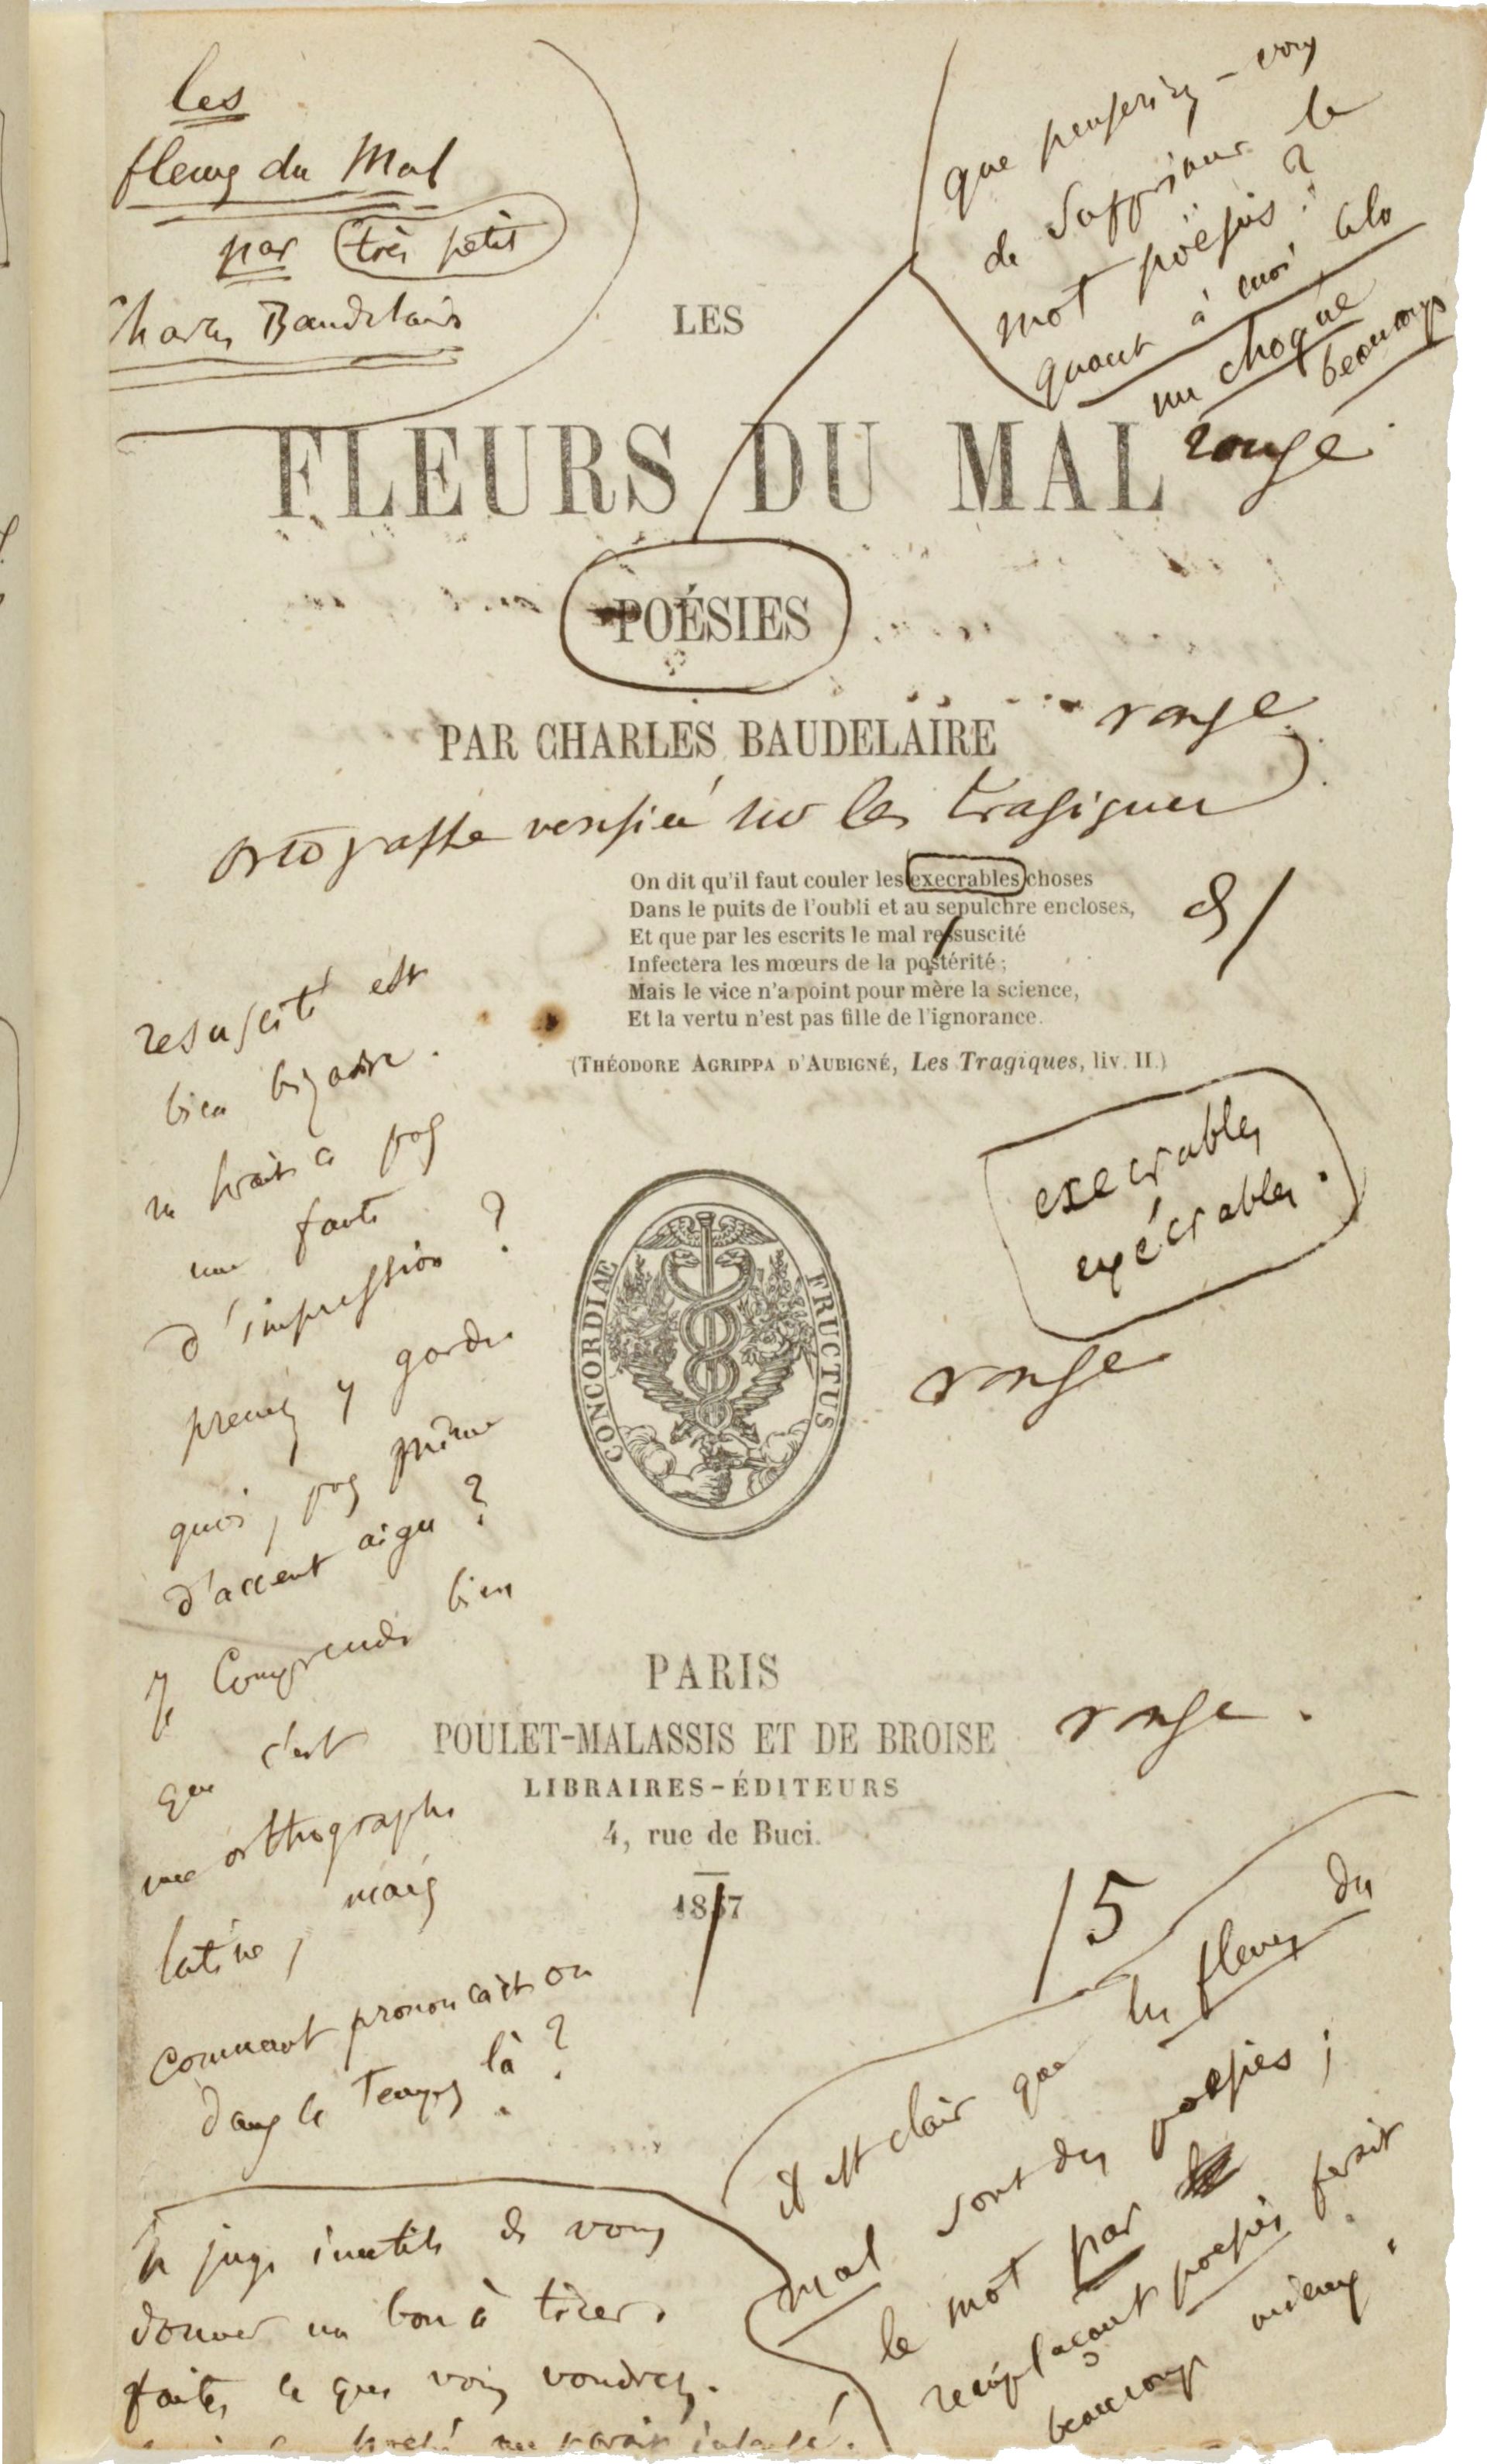 les
fleurs du Mal
par très petit
Charles Baudelaire
que penseriez-vous
de supprimer le
mot poësies ?
quant à moi cela
me choque
beaucoup
LES
FLEURS DU MAL
rouge
POÉSIES
PAR CHARLES BAUDELAIRE
rouge
ortographe verifiée sur les tragiques
On dit qu'il faut couler les execrables choses
Dans le puits de l'oubli et au sepulchre encloses,
Et que par les escrits le mal ressuscité
Infectera les mœurs de la postérité ;
Mais le vice n'a point pour mère la science,
Et la vertu n'est pas fille de l'ignorance.
(THÉODORE AGRIPPA D'AUBIGNÉ, Les Tragiques, liv. II.)
resuscité est
bien bizarre.
ne serait-ce pas
une faute
d'impression ?
prenez y garde
quoi, pas même
d'accent aigu ?
Je comprends bien
que c'est
une orthographe
latine, mais
comment prononcait on
dans le temps là ?
execrables
exécrables.
rouge
CONCORDIAE FRUCTUS
PARIS
POULET-MALASSIS ET DE BROISE
rouge.
LIBRAIRES-ÉDITEURS
4, rue de Buci.
1857
/5
il est clair que les fleurs du
mal sont des poesies ;
le mot par
remplaçant poesies ferait
beaucoup mieux.
Je juge inutile de vous
donner un bon à tirer.
faites ce que vous voudrez.